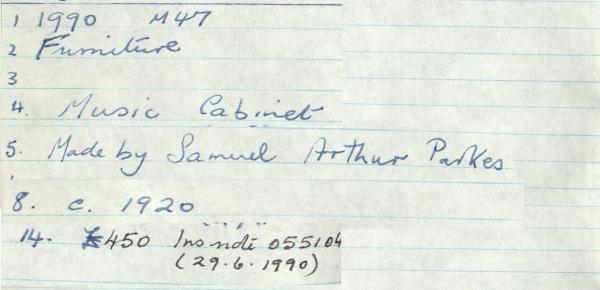 1 1990 M47
2 Furniture
3
4. Music Cabinet
5. Made by Samuel Arthur Parkes
8. c. 1920
14. £450 Ins note 055104
(29.6.1990)